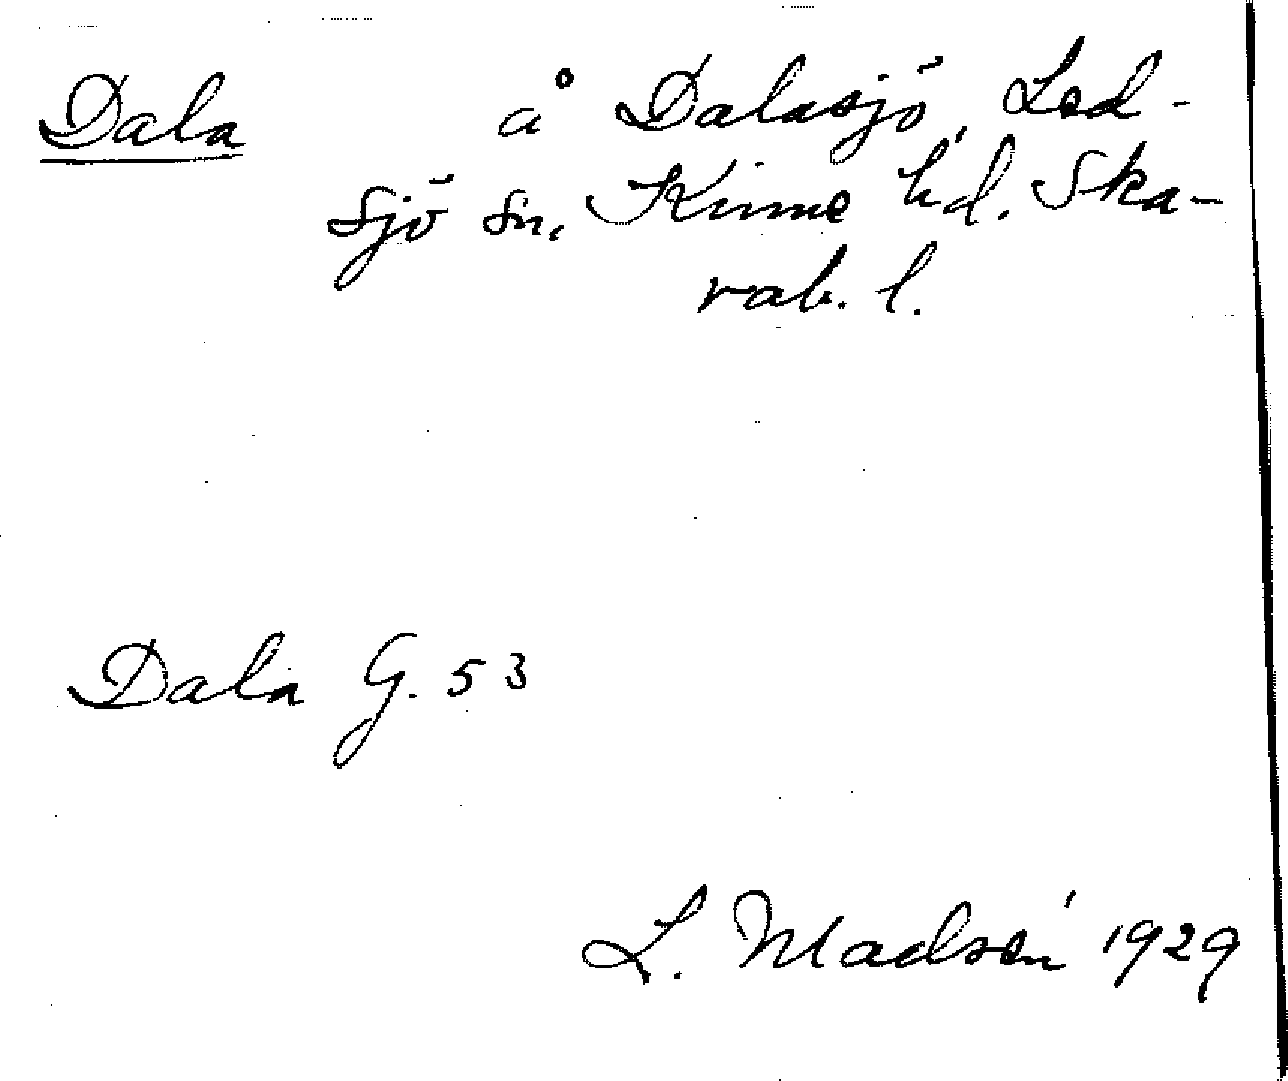 Dala å Dalasjö, Led-
sjö sn. Kinne hd. Ska-
rab. l.
Dala G. 53
L. Madsén 1929